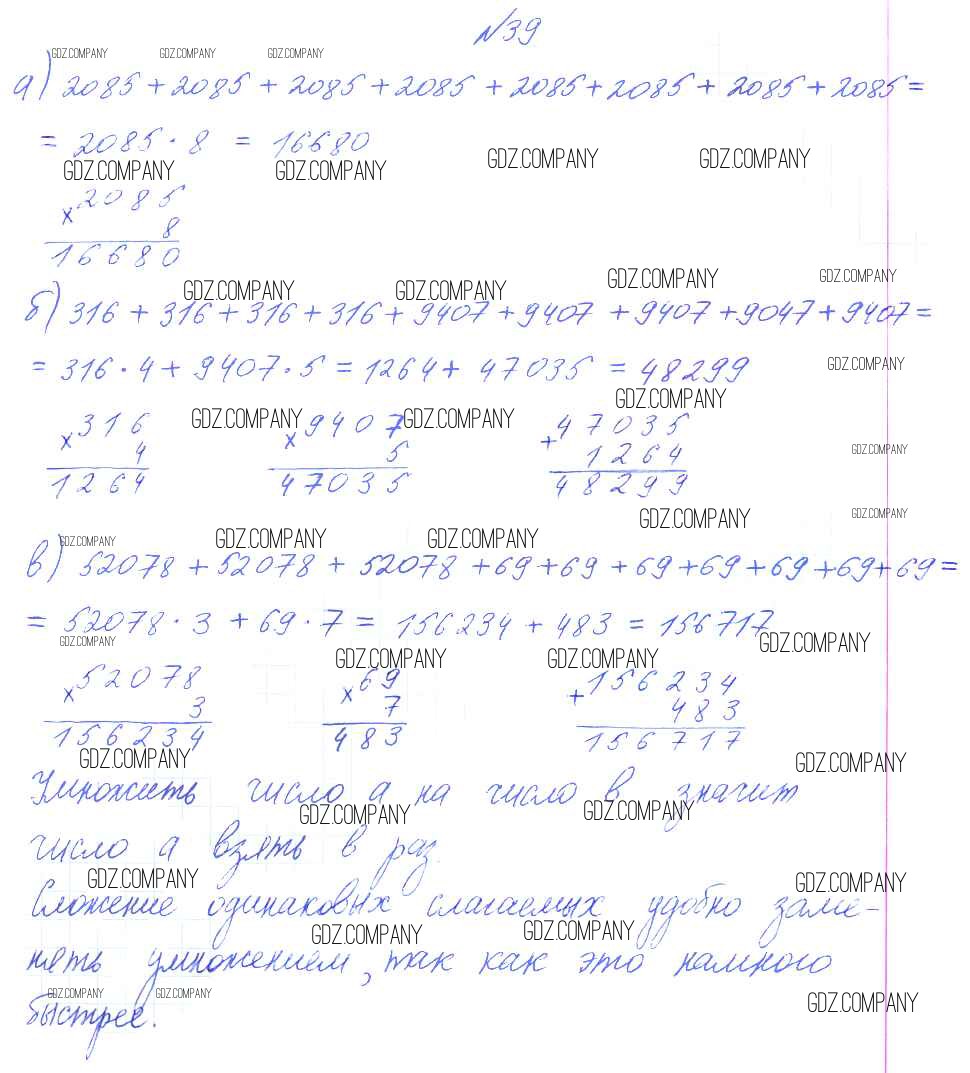 №39
GDZ.COMPANY GDZ.COMPANY GDZ.COMPANY
а) 2085 + 2085 + 2085 + 2085 + 2085 + 2085 + 2085 + 2085 =
= 2085 · 8 = 16680
GDZ.COMPANY GDZ.COMPANY GDZ.COMPANY GDZ.COMPANY
× 2085
8
16680
GDZ.COMPANY GDZ.COMPANY GDZ.COMPANY GDZ.COMPANY
б) 316 + 316 + 316 + 316 + 9407 + 9407 + 9407 + 9047 + 9407 =
= 316 · 4 + 9407 · 5 = 1264 + 47035 = 48299
GDZ.COMPANY
GDZ.COMPANY GDZ.COMPANY GDZ.COMPANY
× 316 × 9407 + 47035
4 5 1264
GDZ.COMPANY
1264 47035 48299
GDZ.COMPANY GDZ.COMPANY
GDZ.COMPANY GDZ.COMPANY GDZ.COMPANY
в) 52078 + 52078 + 52078 + 69 + 69 + 69 + 69 + 69 + 69 + 69 =
= 52078 · 3 + 69 · 7 = 156234 + 483 = 156717
GDZ.COMPANY GDZ.COMPANY
GDZ.COMPANY GDZ.COMPANY
× 52078 × 69 + 156234
3 7 483
156234 483 156717
GDZ.COMPANY GDZ.COMPANY
Умножить число а на число в значит
GDZ.COMPANY GDZ.COMPANY
число а взять в раз.
GDZ.COMPANY GDZ.COMPANY
Сложение одинаковых слагаемых удобно заме-
GDZ.COMPANY GDZ.COMPANY
нять умножением, так как это намного
GDZ.COMPANY GDZ.COMPANY GDZ.COMPANY
быстрее.